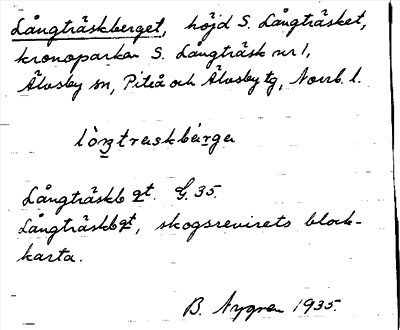 Långträskberget, höjd S. Långträsket,
kronoparken S. Långträsk nr 1,
Älvsby sn, Piteå och Älvsby tg, Norrb. l.
låŋtraskbärge
Långträskb gt. G. 35.
Långträskbgt, skogsrevirets block-
karta.
B. Nygren 1935.